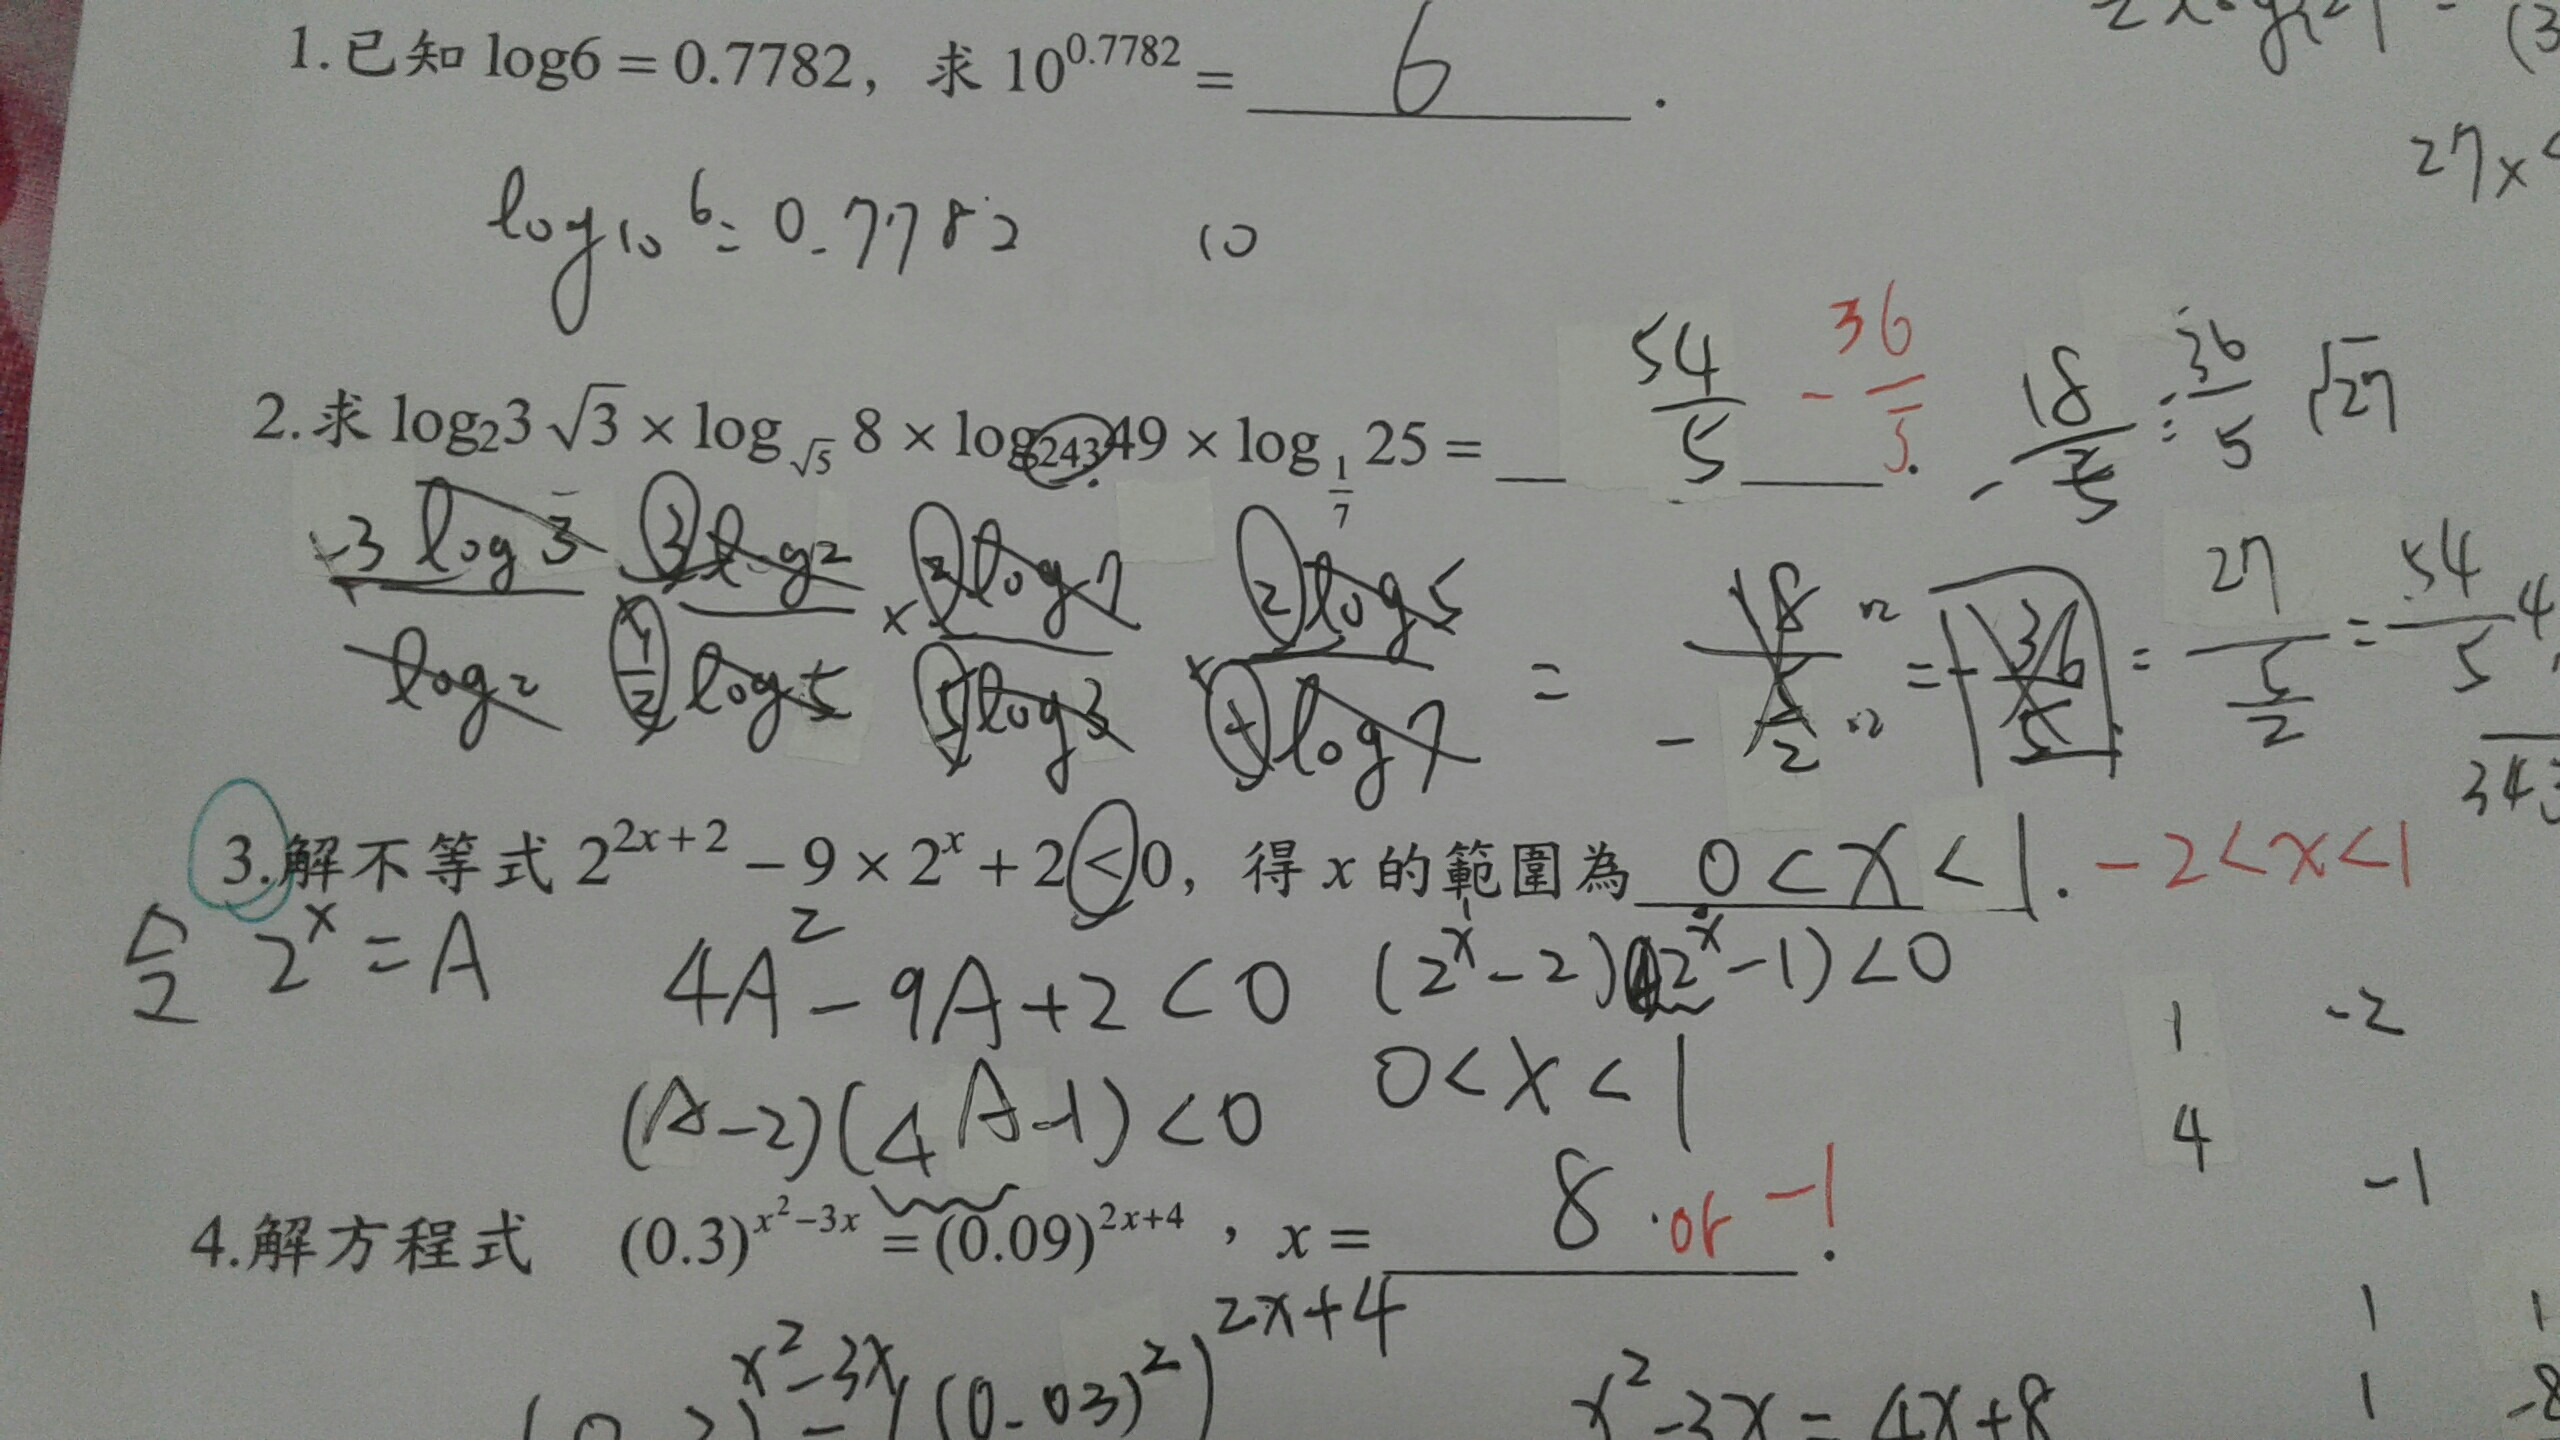 1.已知 log6 = 0.7782, 求 10^0.7782 = 6 .
log10 6 = 0.7782 10
27×
2.求 log₂3√3 × log_√5 8 × log_243 49 × log_1/7 25 = 54/5 . -36/5
-18/ = 36/5 √27
-3 log 3 / log 2 × 3 log 2 / 1/2 log 5 × 2 log 7 / 5 log 3 × 2 log 5 / log 7 = - 18 / 5/2 ×2 ×2 = - 36/5 = 27 / 5/2 = 54/5
343
3.解不等式 2^(2x+2) − 9 × 2^x + 2 < 0, 得 x 的範圍為 0<x<1 . -2<x<1
2^x = A 4A² - 9A + 2 < 0 (2^x - 2)(2^x - 1) < 0
1 -2
(A-2)(4A-1) < 0 0<x<1
4 -1
4.解方程式 (0.3)^(x²−3x) = (0.09)^(2x+4) , x = 8 . or -1
x²-3x ((0.03)²)^(2x+4) x²-3x = 4x+8
1 1
1 -8